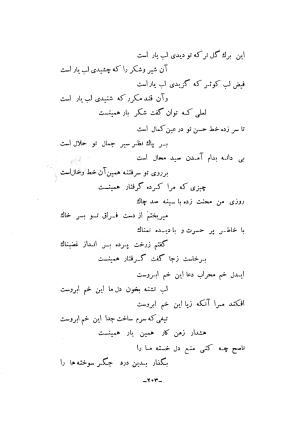 این برك گل تر که تو دیدی لب یار است
آن شیر و شکر را که چشیدی لب یار است
فیض لب کوثر که گزیدی لب یار است
وآن قند مکرر که شنیدی لب یار است
لعلی که توان گفت شکر بار همینست
تا سر زده خط حسن تو در عین کمال است
بر پاك نظر سیر جمال تو حلال است
بی دانه بدام آمدن صید محال است
بر روی تو سر فتنه همین آن خط و خال است
چیزی که مرا کرده گرفتار همینست
روزی من محنت زده با سینه صد چاك
میرفتم از دست فراق تو بسر خاك
با خاطر پر حسرت و با دیده نمناك
گفتم ز رخت پرده بر انداز غضبناك
برخاست ز جا گفت گرفتار همینست
ایدل خم محراب دعا این خم ابروست
لب تشنه بخون دل ما این خم ابروست
افکند مرا آنکه ز پا این خم ابروست
تیغی که سرم ساخت جدا این خم ابروست
هشدار زمن کار همین یار همینست
ناصح چه کنی منع دل خسته ما را
بگذار بدین درد جگر سوخته ها را
-۲۰۳-